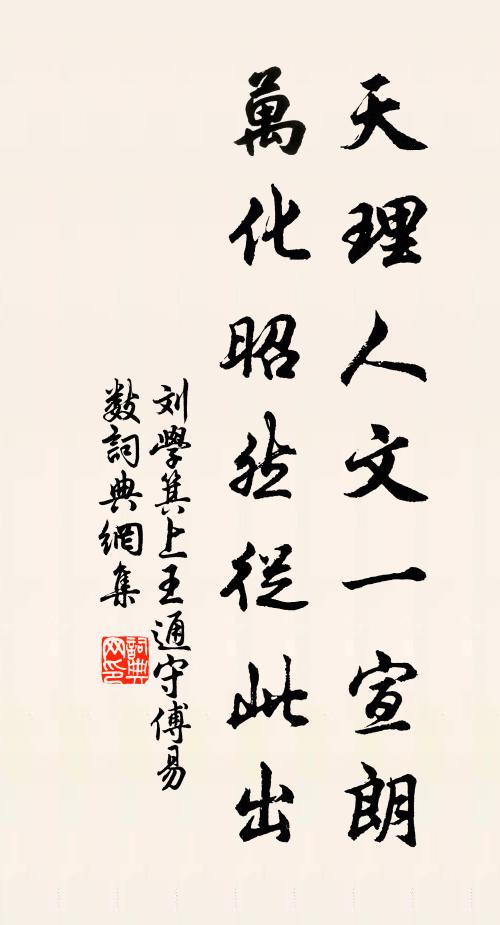 天理人文一宣朗
萬化昭然從此出
刘學箕上王通守傅易
數詞典網集
詞典网印